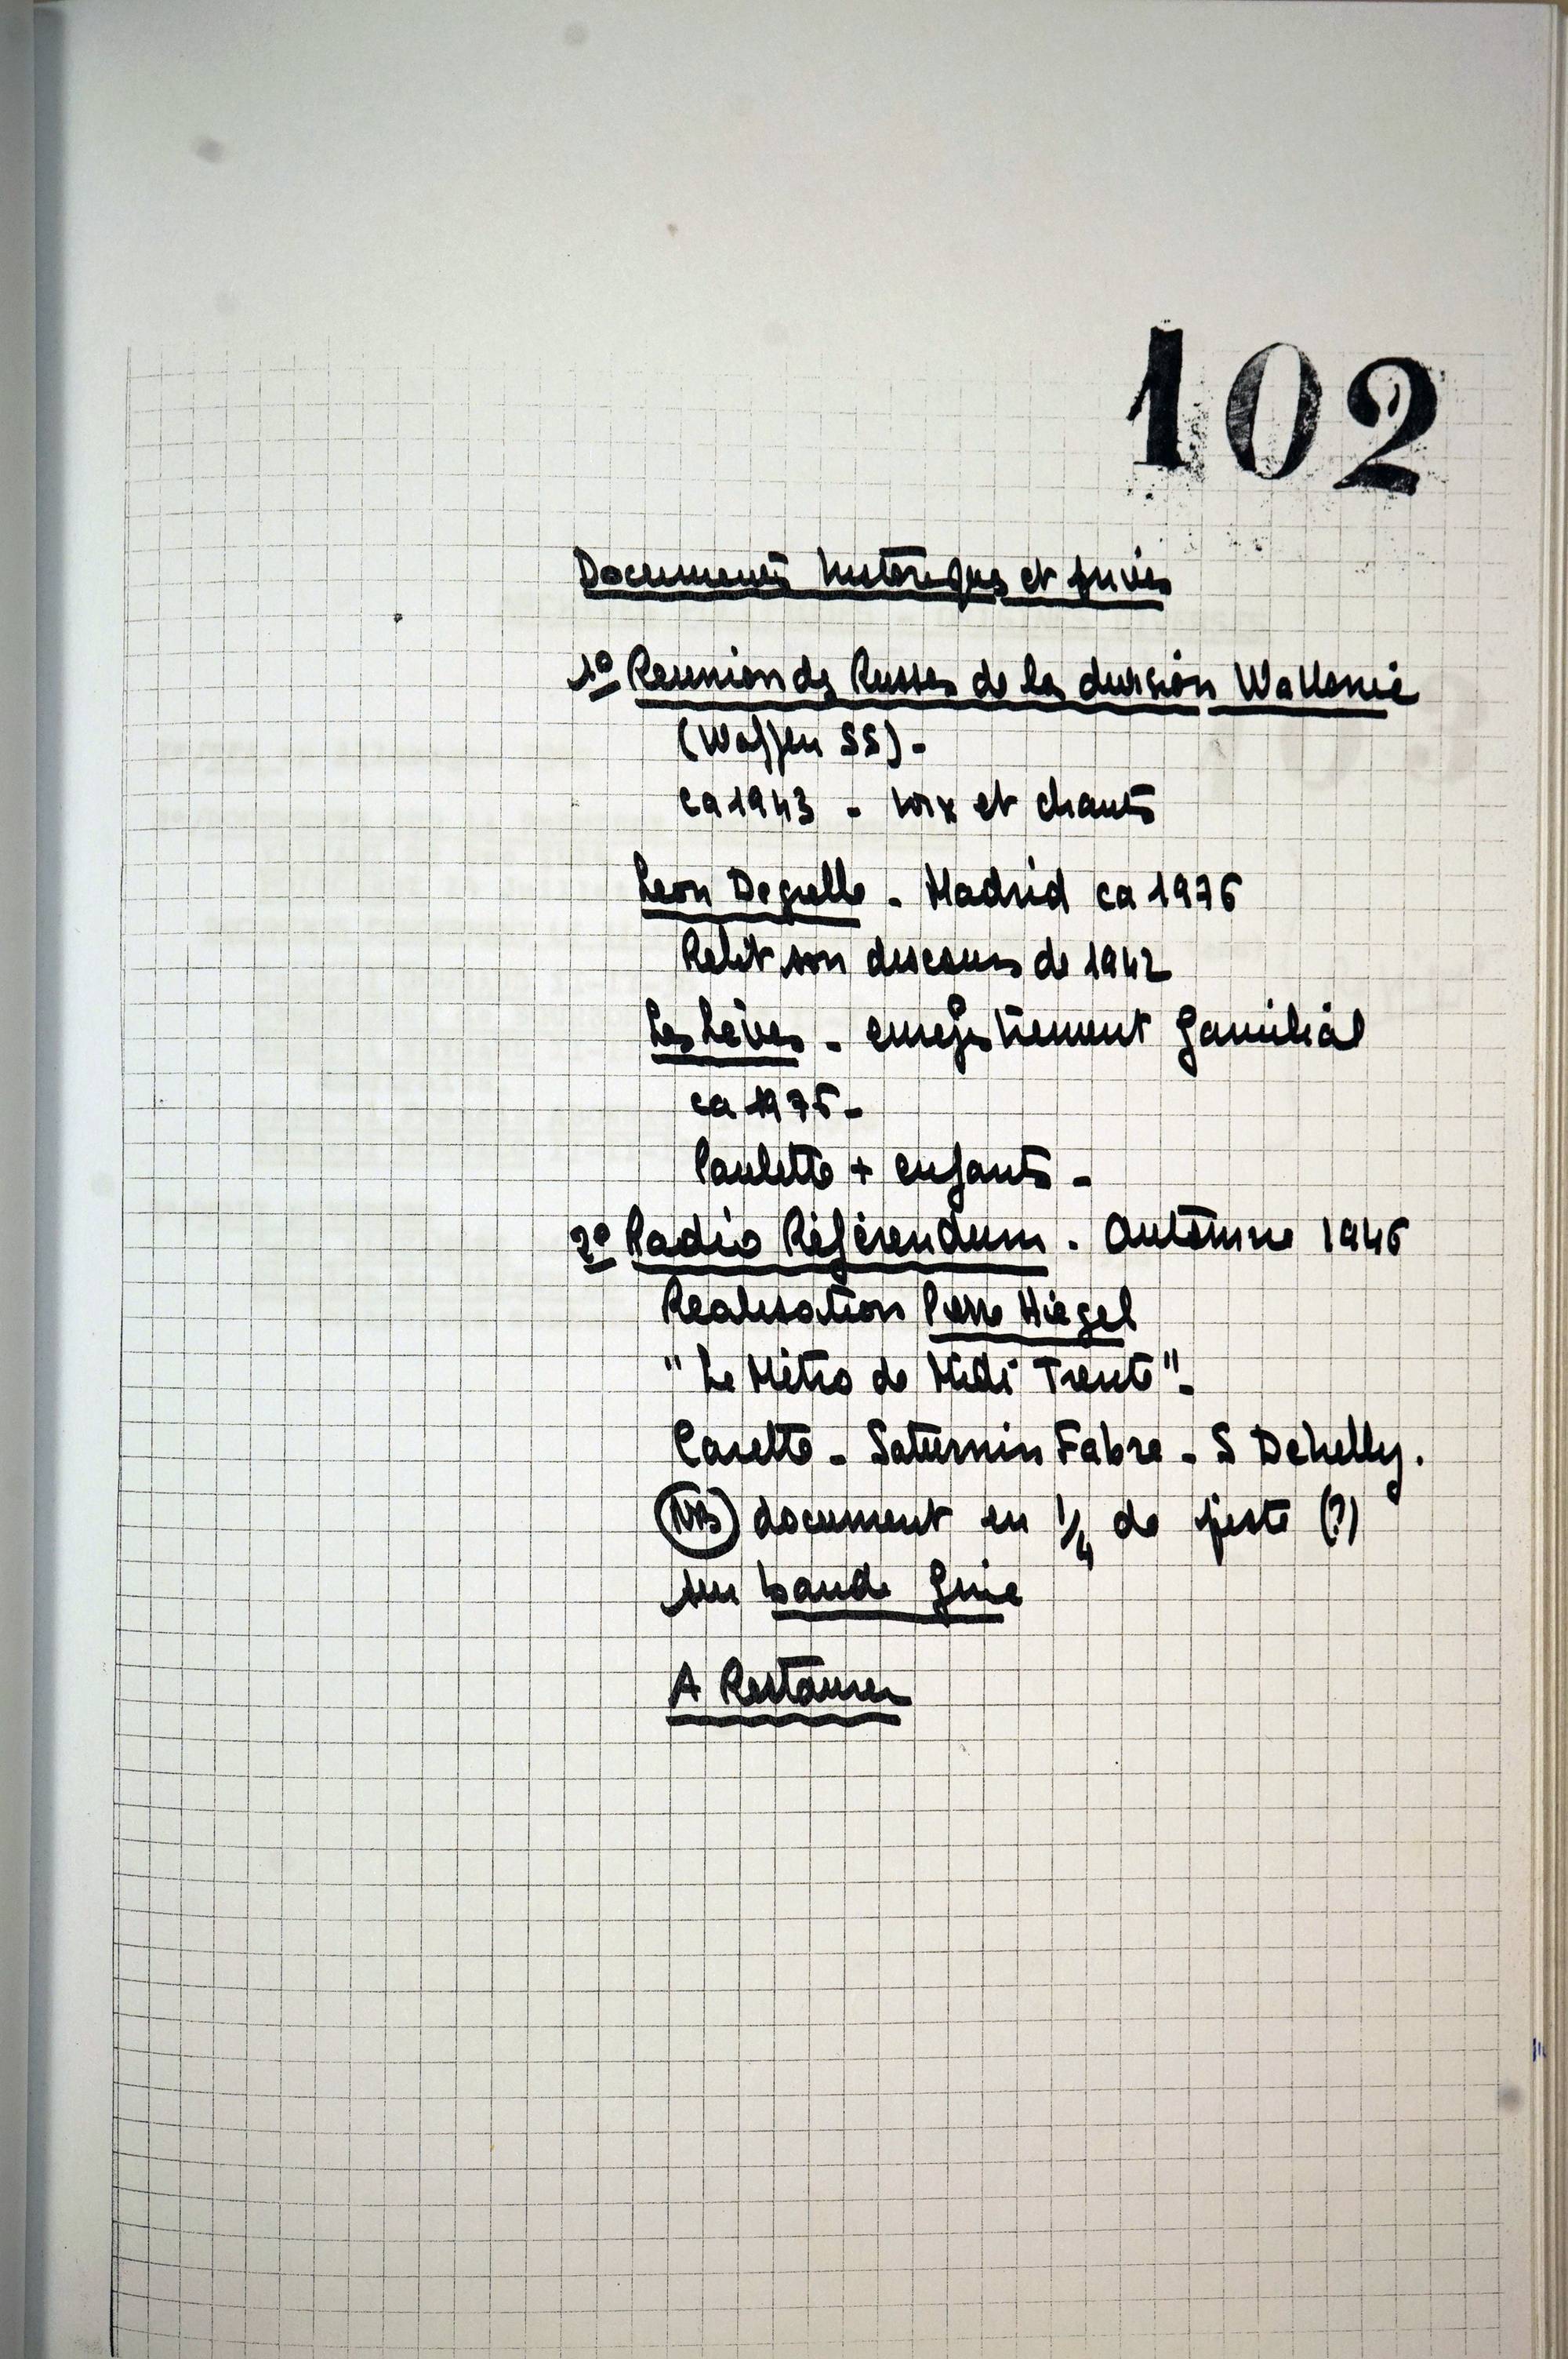 102
Documents historiques et privés
1º Reunion des Russes de la division Wallonie
(Waffen SS) -
ca 1943 - voix et chants
Leon Degrelle - Madrid ca 1976
Relit son discours de 1942
Les - enregistrement familial
ca 1975 -
Paulette + enfants -
2º Radio Référendum. Automne 1946
Realisation Pierre Hiégel
"Le Métro de Midi Trente" -
Carette - Saturnin Fabre - S Dehelly.
NB document en 1/4 de piste (?)
sur bande
A Restaurer